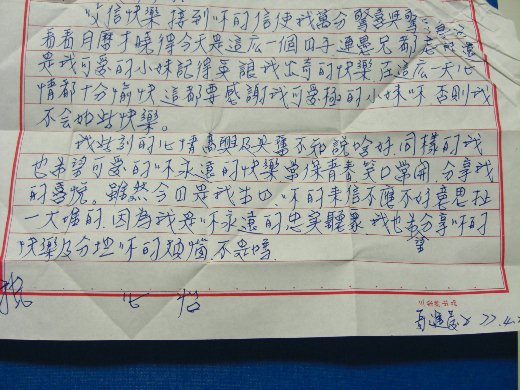 收信快樂 接到妳的信使我萬分驚喜與
看看月曆才曉得今天是這広一個日子連愚兄都忘的
是我可愛的小妹記得英誕我出奇的快樂在這広一天心
情都十分愉快這都要感謝我可愛極的小妹妳 否則我
不會如此快樂。
我此刻的心情高興及興奮不知說啥好同樣的我
也希望可愛的妳永遠的快樂並保青春笑口常開,分享我
的喜悅。雖然今日是我生日,妳的來信不應不好意思扯
一大堆的,因為我是妳永遠的忠實聽衆,我也希望分享妳的
快樂及分担妳的煩惱,不是嗎
祝 心怡
77.4.